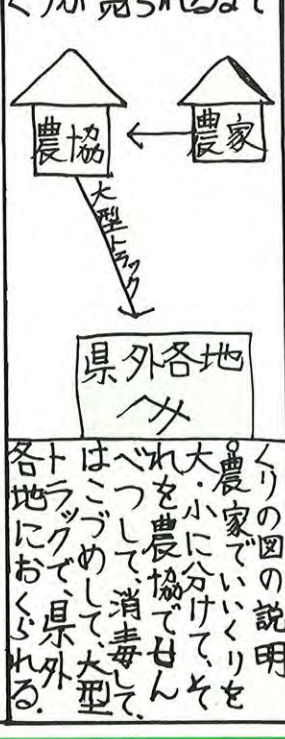 くりが売られるまで
農協
農家
大型トラック
県外各地
へ
くりの図の説明
農家でいいくりを
大・小に分けて、そ
れを農協でせん
べつして、消毒して、
はこづめして、大型
トラックで、県外
各地におくられる。